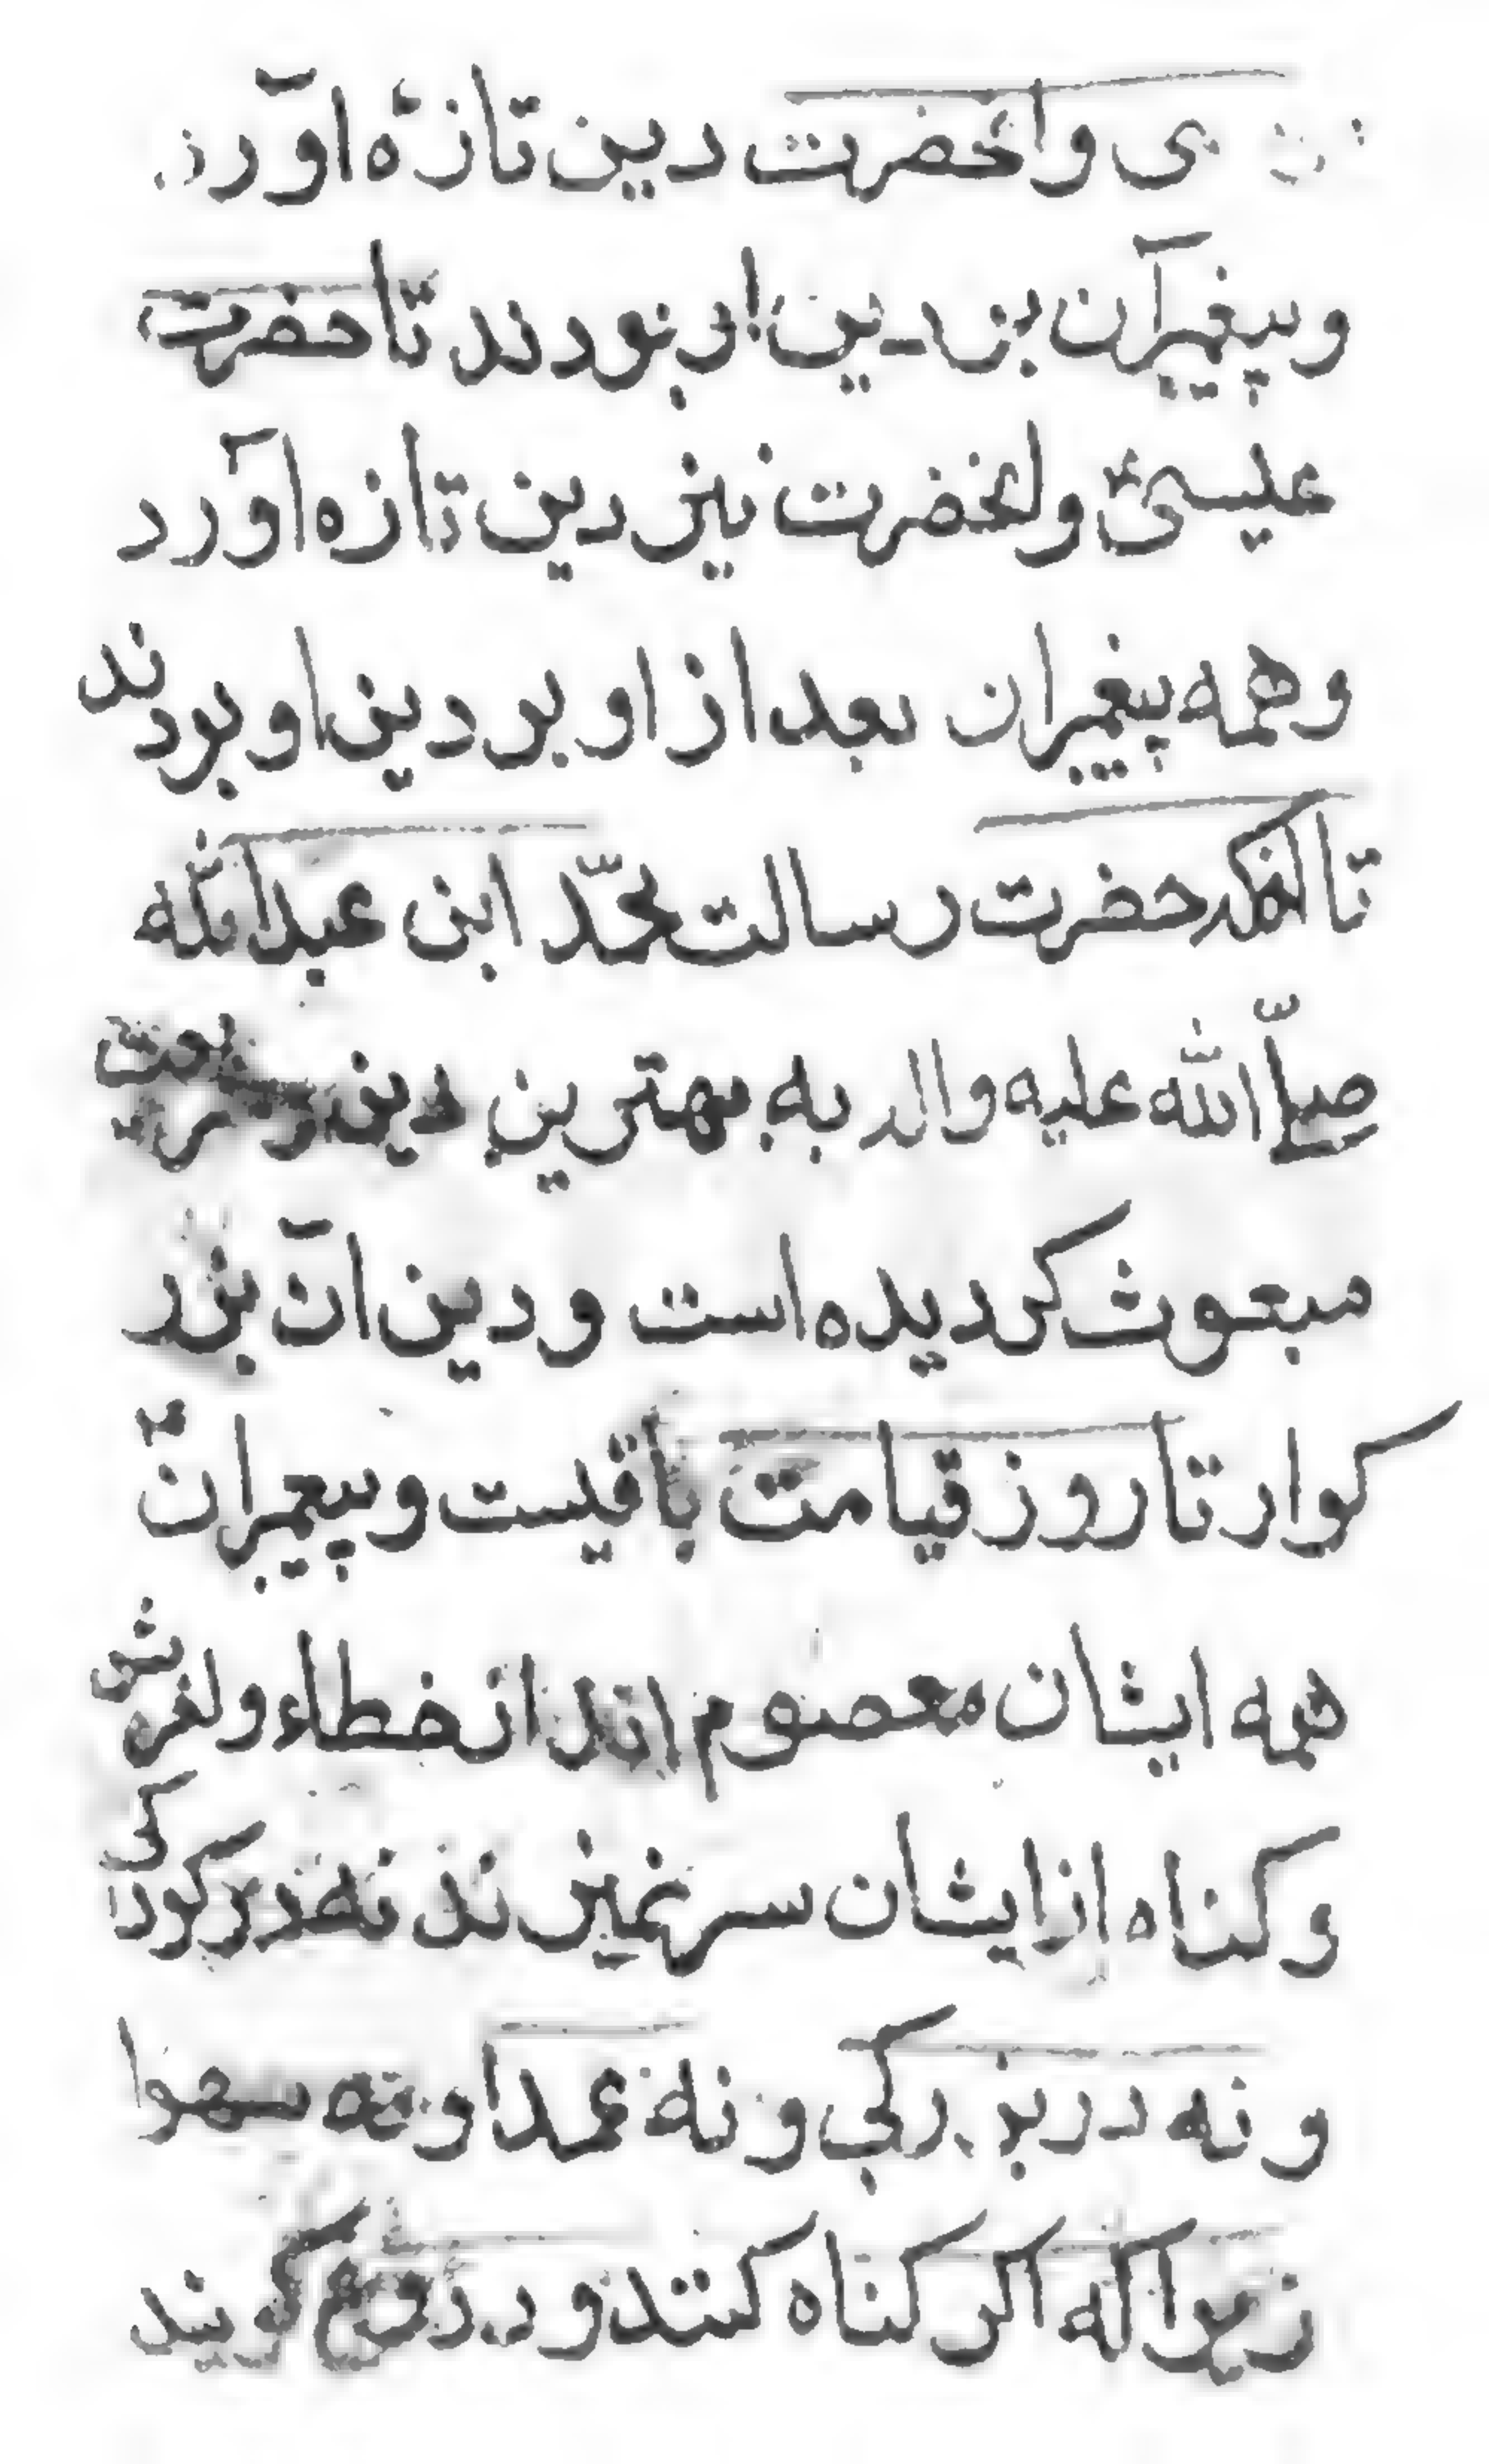 وانحضرت دین تازه اورد
وپیغمبران بر دین او بودند تا حضرت
عیسی وانحضرت نیز دین تازه اورد
وهمه پیغمبران بعد از او بر دین او بودند
تا انکه حضرت رسالت محمّد ابن عبدالله
صلّی الله علیه واله به بهترین دین وشریعت
مبعوث کردیده است ودین ان بزر
کوار تا روز قیامت باقیست وپیغمران
همه ایشان معصوم اند از خطاء ولغزش
وکناه از ایشان سر نمیزند نه در کودکی
ونه در بزرکی ونه عمدا ونه سهوا
زیرا که اکر کناه کنند ودروغ کویند